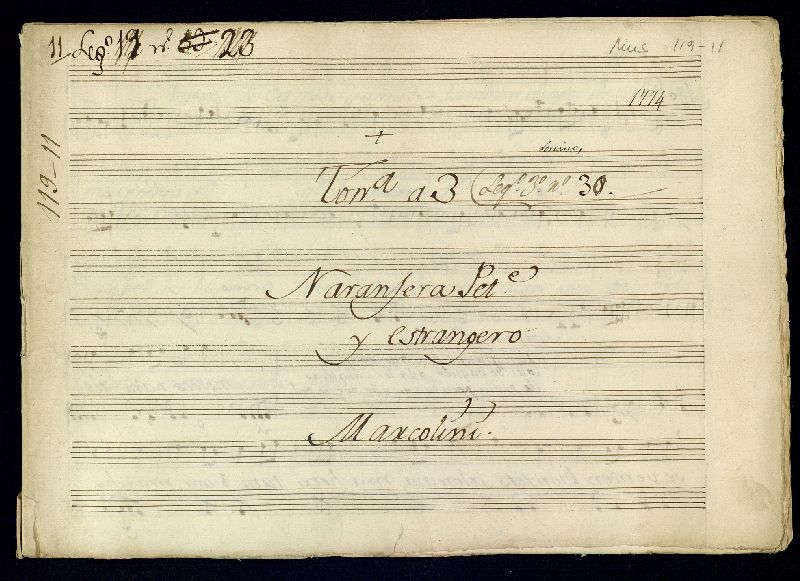 11 Legº 19 nº 23
Mus 119-11
1774
119-11
+
Tonª a 3 (Legº. 3º. nº. 30.
Naranjera Petᵉ
y estrangero
Marcolini.